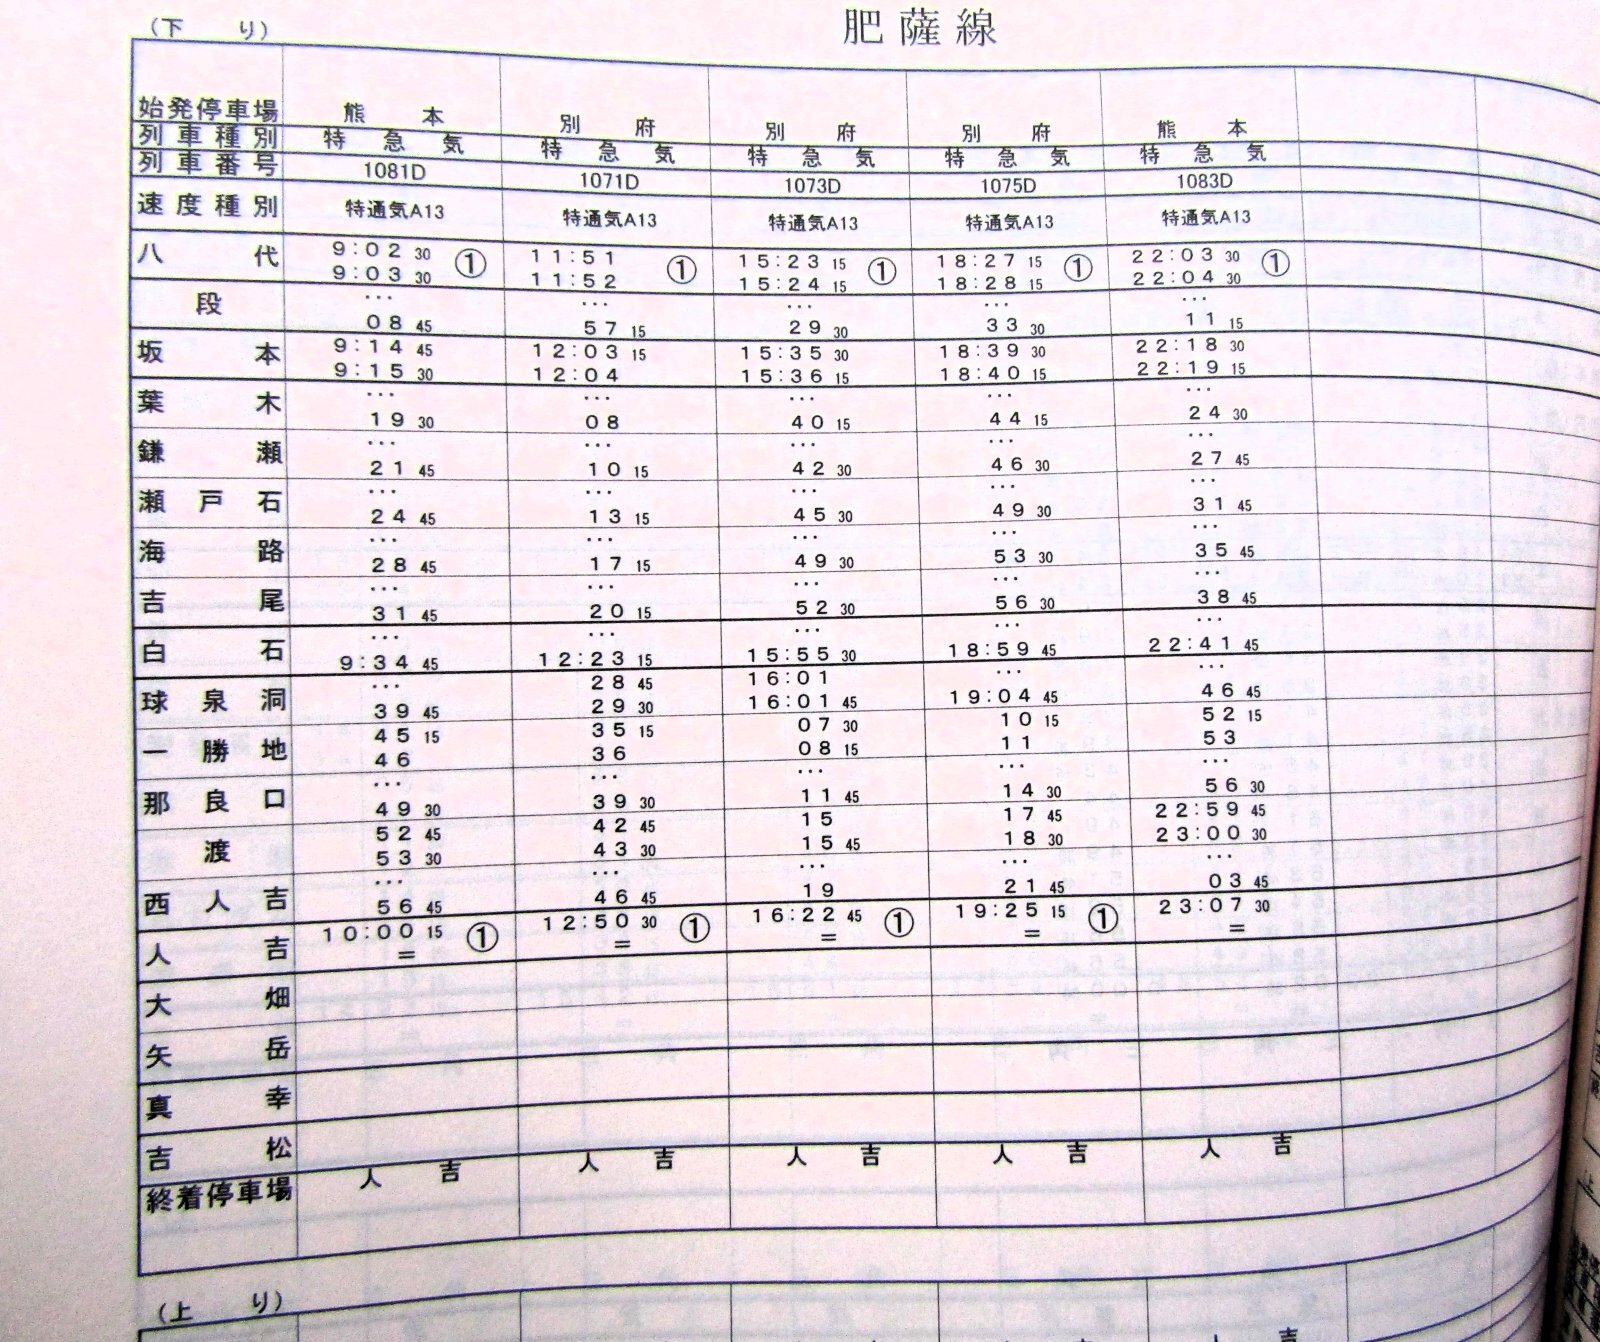 肥薩線
（下り）
始発停車場 熊本 別府 別府 別府 熊本
列車種別 特急気 特急気 特急気 特急気 特急気
列車番号 1081D 1071D 1073D 1075D 1083D
速度種別 特通気A13 特通気A13 特通気A13 特通気A13 特通気A13
八代 9:02 30 ① 11:51 ① 15:23 15 ① 18:27 15 ① 22:03 30 ①
9:03 30 11:52 15:24 15 18:28 15 22:04 30
段 … … … … …
08 45 57 15 29 30 33 30 11 15
坂本 9:14 45 12:03 15 15:35 30 18:39 30 22:18 30
9:15 30 12:04 15:36 15 18:40 15 22:19 15
葉木 … … … … …
19 30 08 40 15 44 15 24 30
鎌瀬 … … … … …
21 45 10 15 42 30 46 30 27 45
瀬戸石 … … … … …
24 45 13 15 45 30 49 30 31 45
海路 … … … … …
28 45 17 15 49 30 53 30 35 45
吉尾 … … … … …
31 45 20 15 52 30 56 30 38 45
白石 … … … … …
9:34 45 12:23 15 15:55 30 18:59 45 22:41 45
球泉洞 … 28 45 16:01 … …
39 45 29 30 16:01 45 19:04 45 46 45
一勝地 45 15 35 15 07 30 10 15 52 15
46 36 08 15 11 53
那良口 … … … … …
49 30 39 30 11 45 14 30 56 30
渡 52 45 42 45 15 17 45 22:59 45
53 30 43 30 15 45 18 30 23:00 30
西人吉 … … … … …
56 45 46 45 19 21 45 03 45
人吉 10:00 15 ① 12:50 30 ① 16:22 45 ① 19:25 15 ① 23:07 30
= = = = =
大畑
矢岳
真幸
吉松
終着停車場 人吉 人吉 人吉 人吉 人吉
（上り）